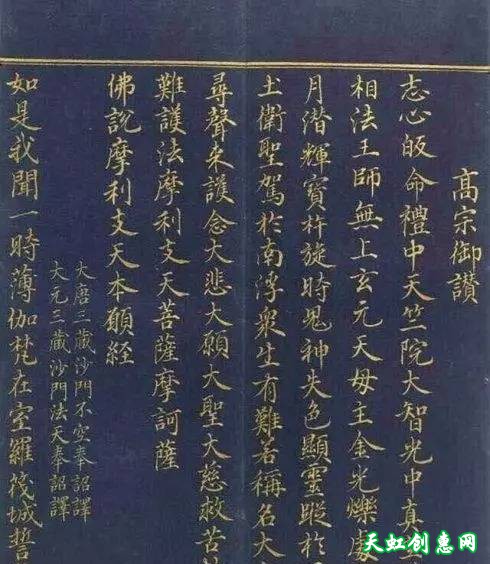 高宗御讚
志心皈命禮中天竺院大智光中真
相法王師無上玄元天母王金光爍處
月潛輝寶杵旋時鬼神失色顯靈蹤於
土衛聖駕於南浮衆生有難若稱名大
尋聲來護念大悲大願大聖大慈救苦
難護法摩利支天菩薩摩訶薩
佛說摩利支天本願經
大唐三藏沙門不空奉詔譯
大元三藏沙門法天奉詔譯
如是我聞一時薄伽梵在室羅筏城誓
天虹创惠网